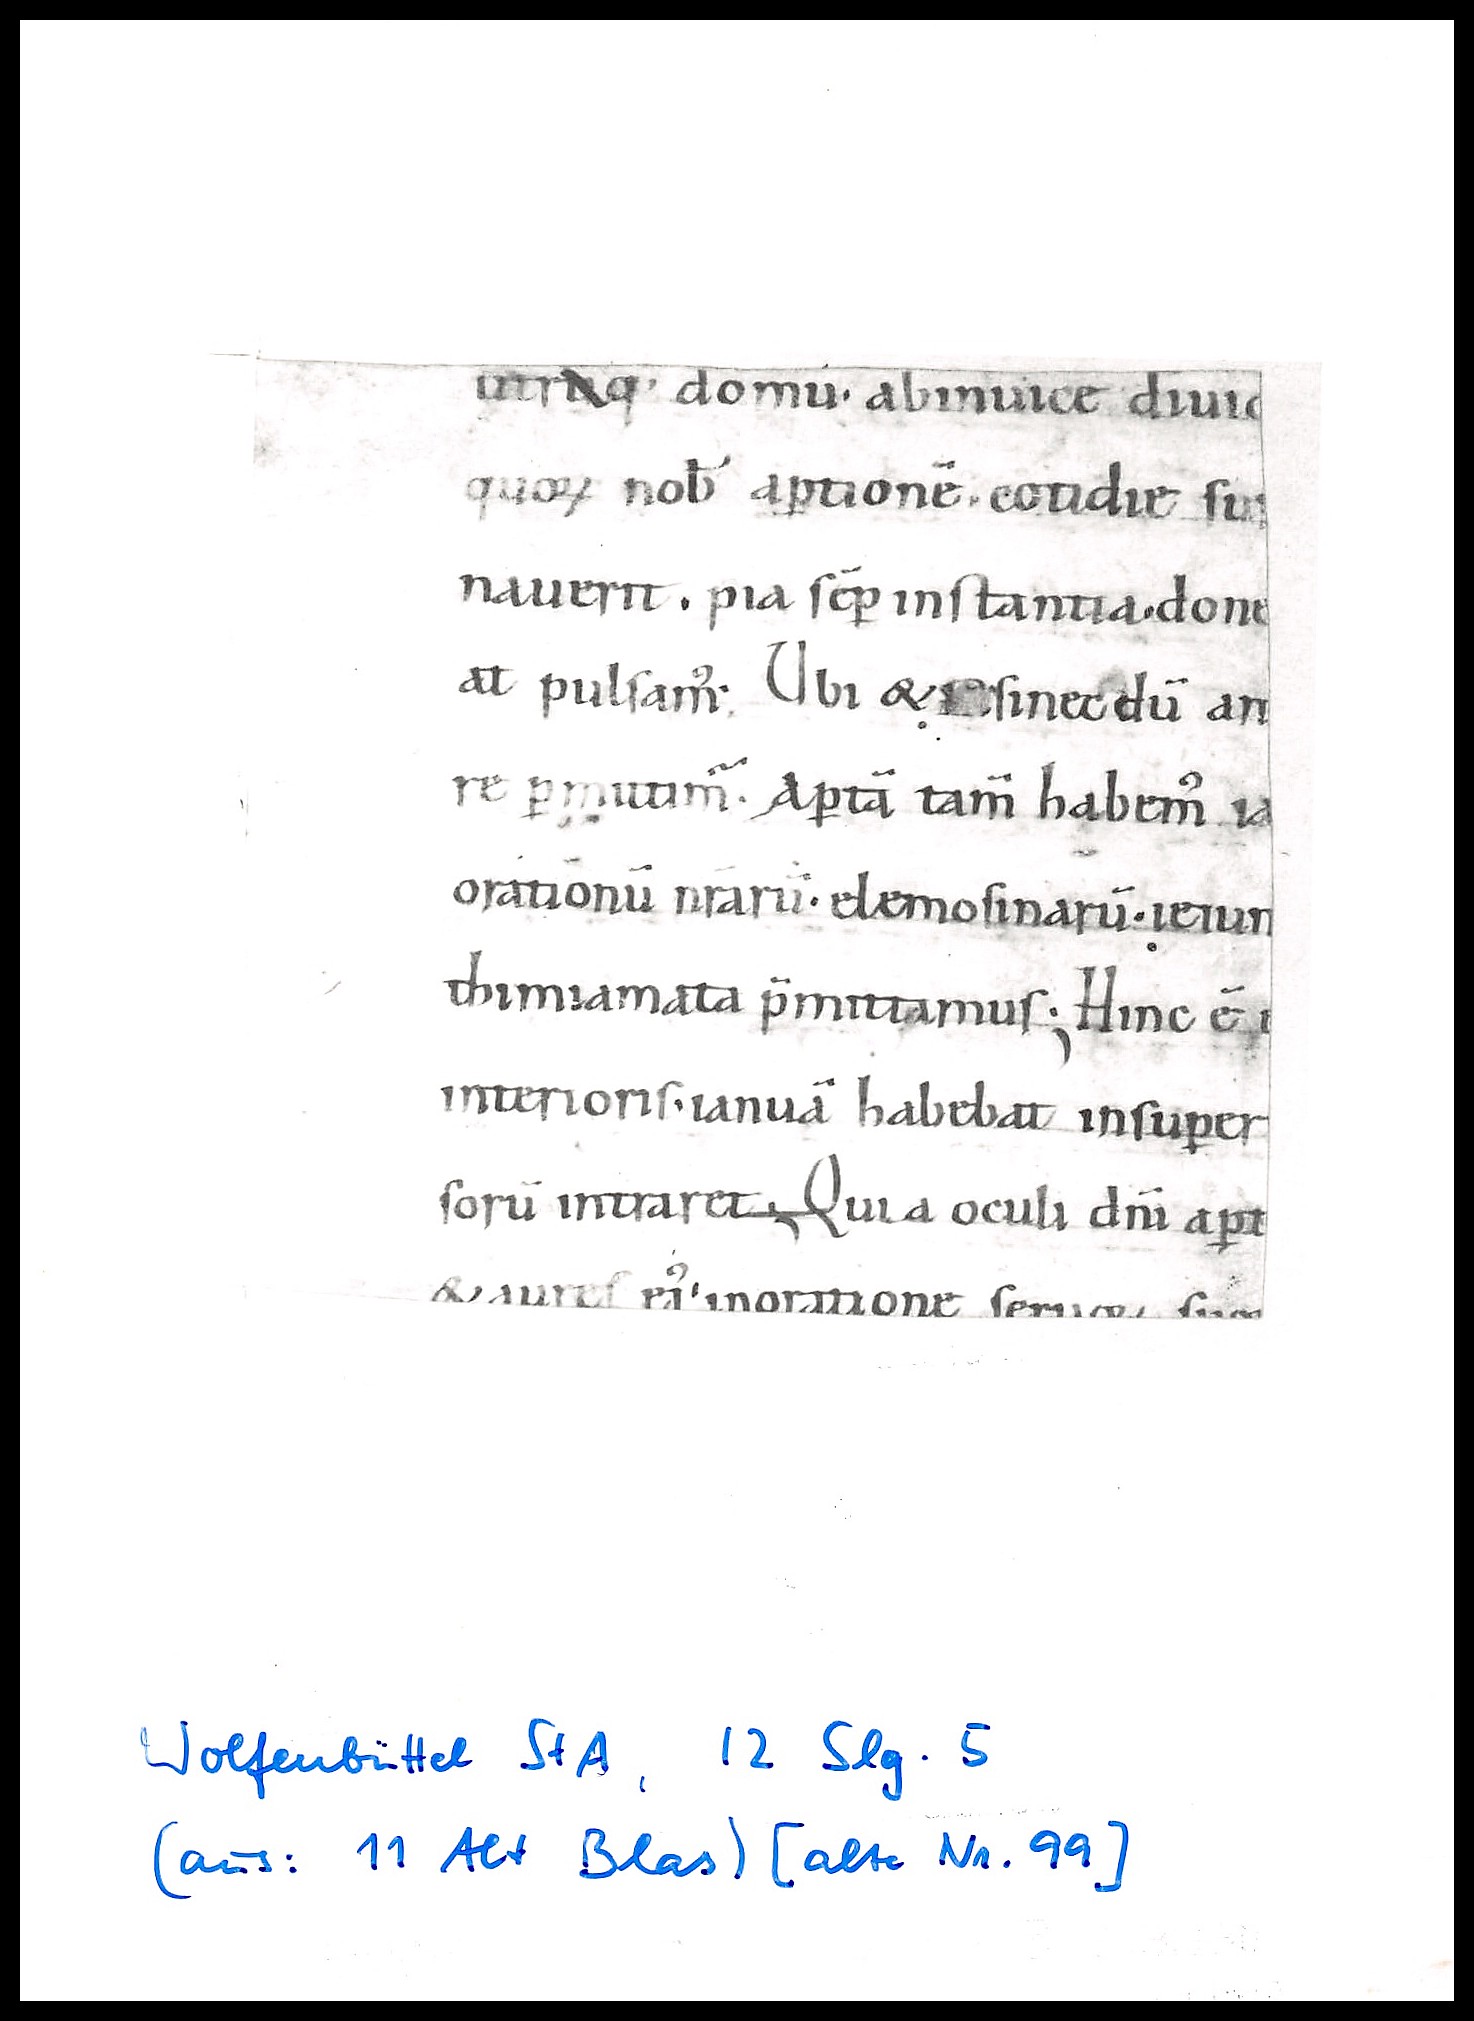 utrāq; domū· abinuicē diuid
quoꝝ nob' aꝑtionē· cotidie su
nauerit · pia sēꝑ instantia·done
at pulsamꝰ· Ubi & sinecdū an
re ꝑmittim̄· Aꝑtā tam̄ habemꝰ ia
orationū nr̄arū· elemosinarū·ieiun
thimiamata p̄mittamus; Hinc ē
interioris·ianuā habebat insuper
sorū intraret; Quia oculi dn̄i aꝑt
& aures eiꝰ inoratione seruoꝝ suoꝝ
Wolfenbüttel StA, 12 Slg. 5
(aus: 11 Alt Blas) [alte Nr. 99]